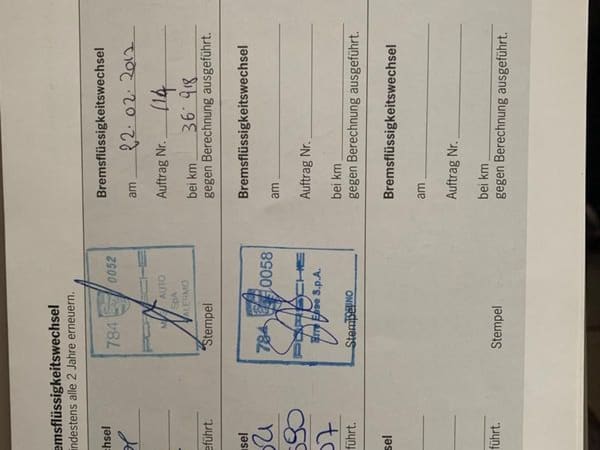 Bremsflüssigkeitswechsel
mindestens alle 2 Jahre erneuern.
784 0052
PORSCHE
AUTO
SpA
Stempel
Bremsflüssigkeitswechsel
am 22.02.2012
Auftrag Nr. 114
bei km 36.918
gegen Berechnung ausgeführt.
784 0058
PORSCHE
S.p.A.
TORINO
Stempel
Bremsflüssigkeitswechsel
am
Auftrag Nr.
bei km
gegen Berechnung ausgeführt.
Stempel
Bremsflüssigkeitswechsel
am
Auftrag Nr.
bei km
gegen Berechnung ausgeführt.